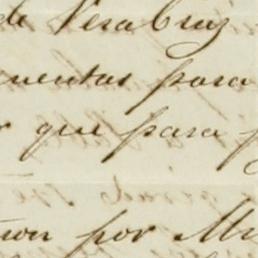 de Vera Cruz
uentas para
que para
por